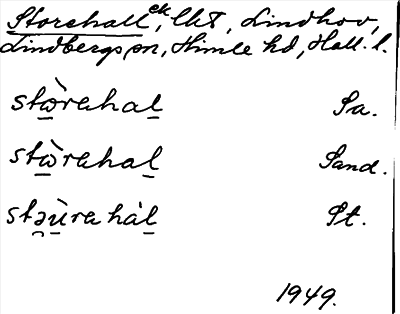 Storehall ek, lht, Lindhov,
Lindbergs sn, Himle hd, Hall. l.
stὼrahal Sa.
stὼrahal Sand.
stəù̱ra hàl St.
1949.